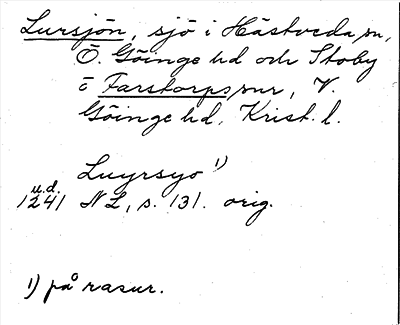 Lursjön, sjö i Hästveda sn,
Ö. Göinge hd och Stoby
o Farstorps snr, V.
Göinge hd, Krist. l.
Luyrsyo 1)
u.d.
1241 NL, s. 131. orig.
1) på rasur.